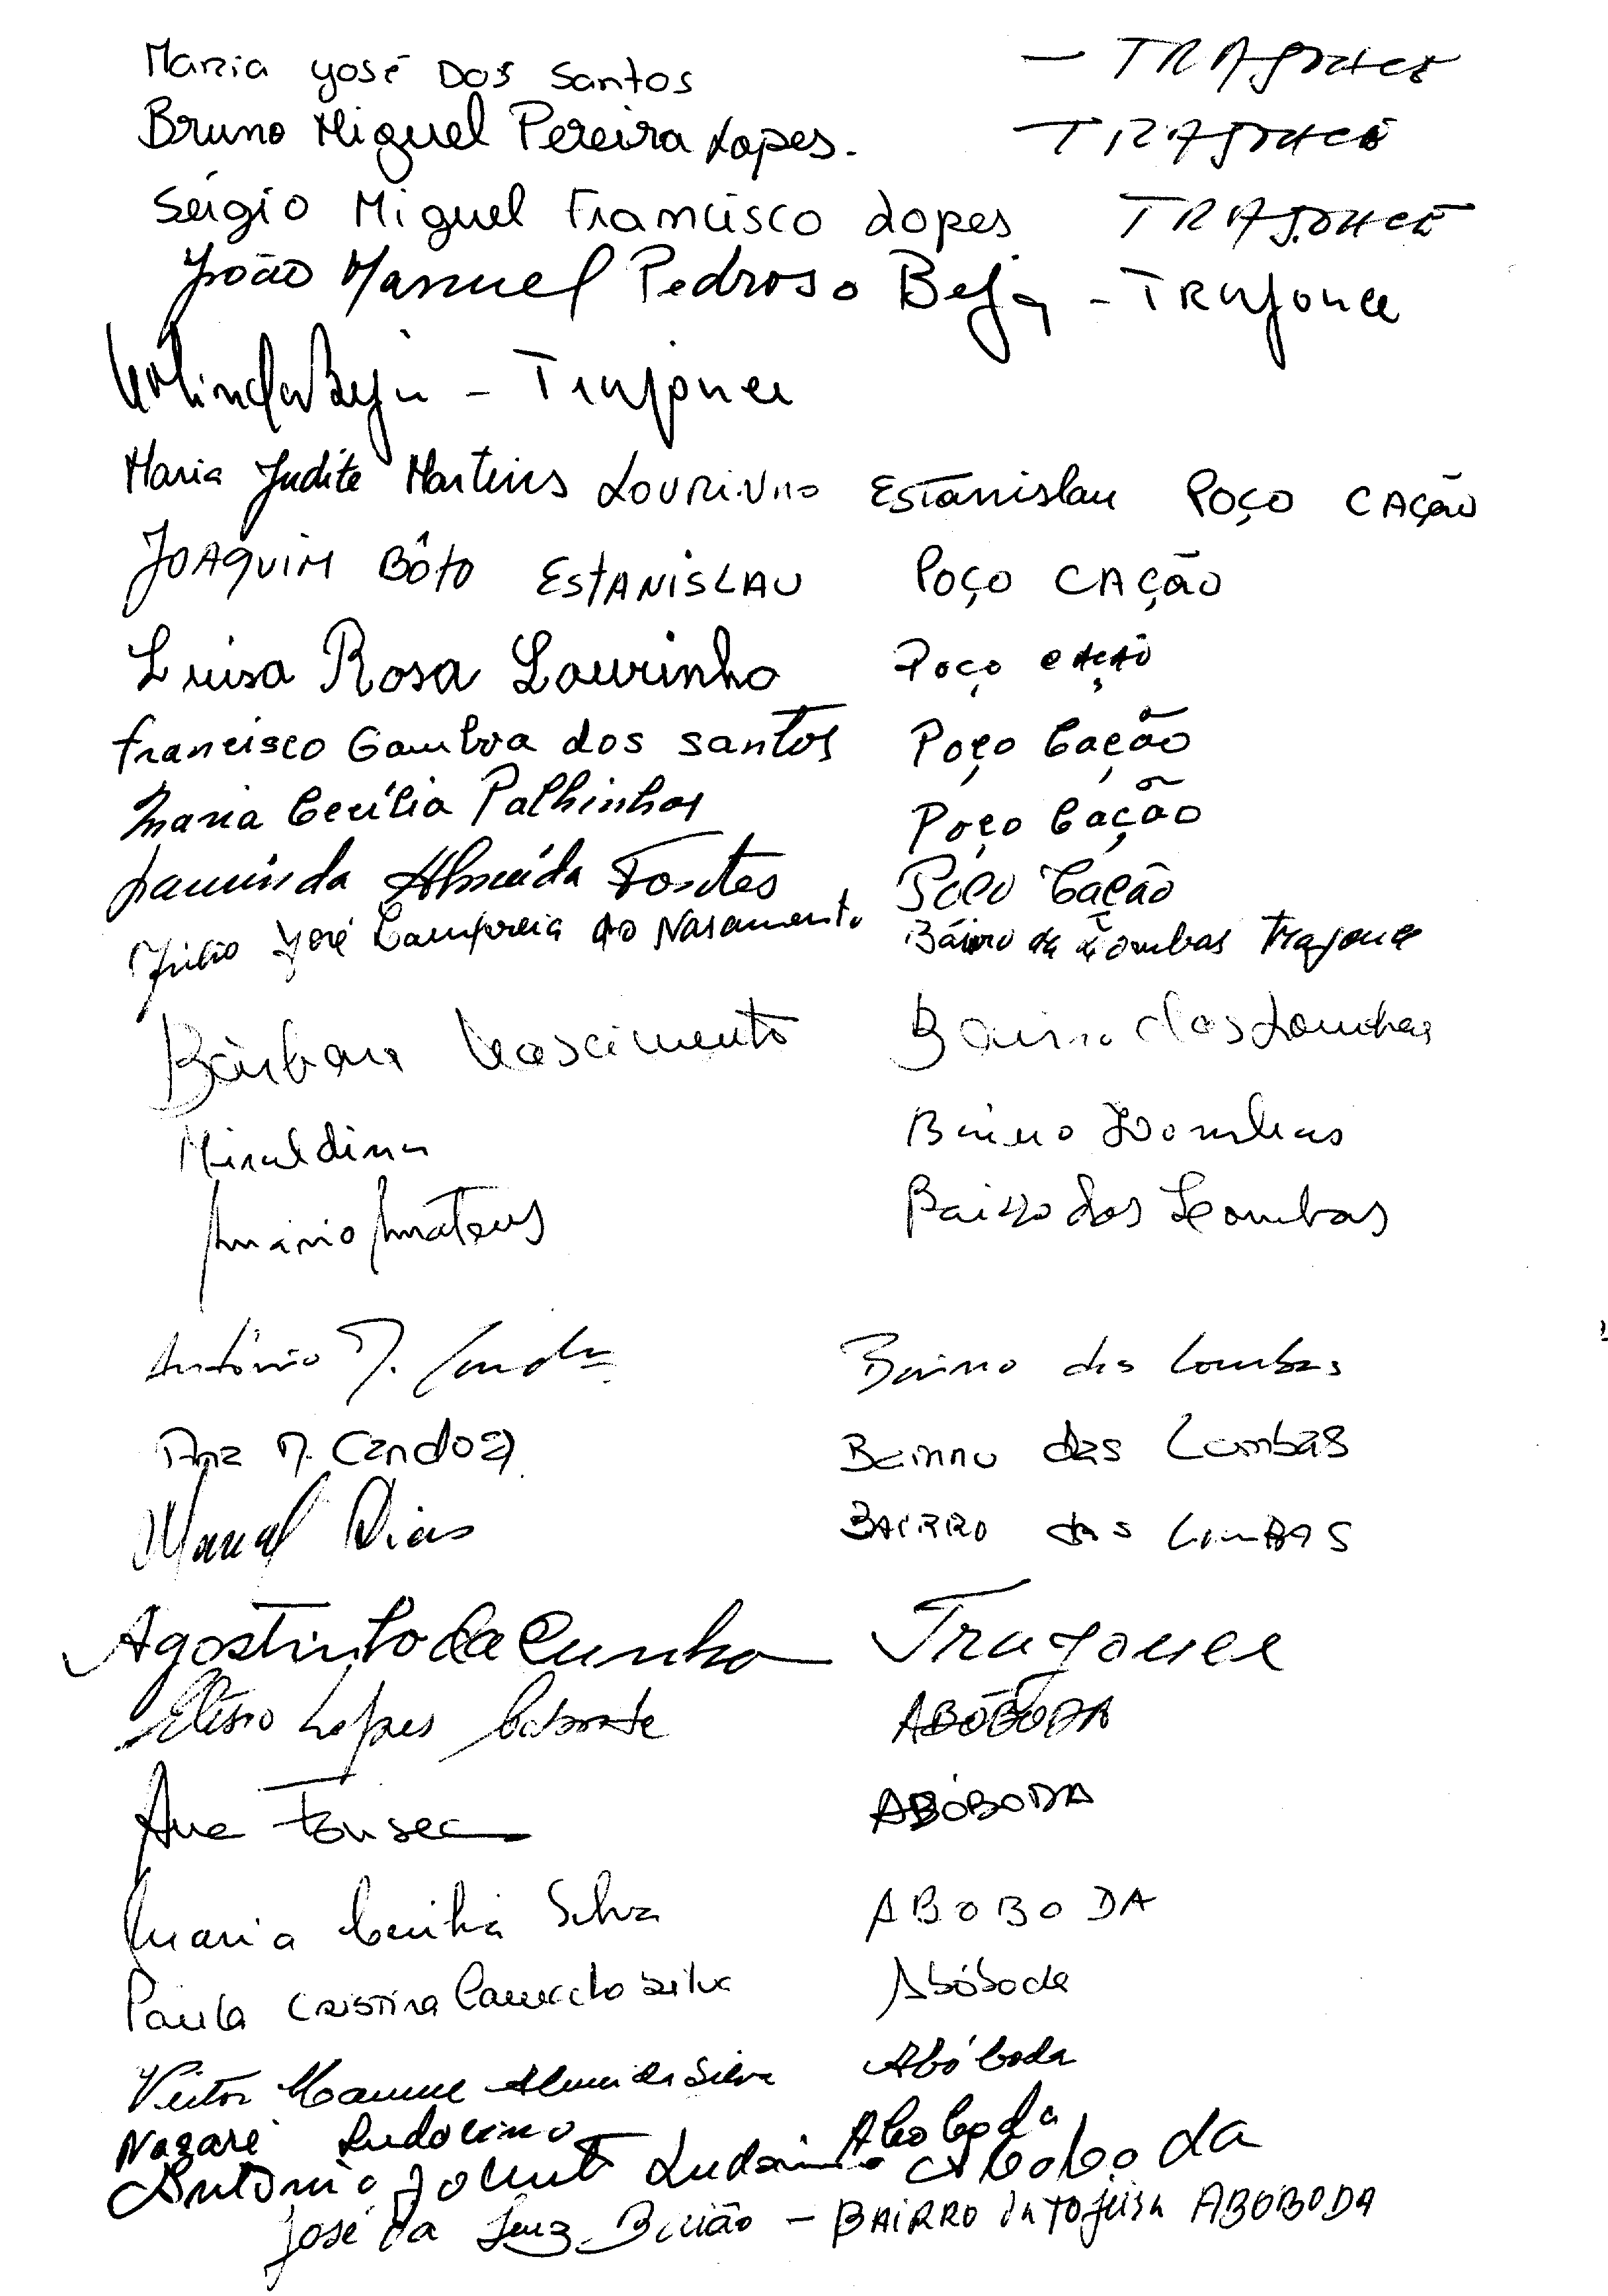 Maria José Dos Santos - TRAJOUCE
Bruno Miguel Pereira Lopes. TRAJOUCE
Sérgio Miguel Francisco Lopes TRAJOUCE
João Manuel Pedroso Beja - TRAJOUCE
Beja - Trajouce
Maria Judite Martins Lourinho Estanislau Poço Cação
JOAQUIM BÔTO ESTANISLAU Poço CAção
Luisa Rosa Lourinho Poço cação
Francisco Gamboa dos Santos Poço Cação
Maria Cecília Palhinhas Poço Cação
Almeida Fontes Poço Cação
Júlio José do Nascimento Bairro das Lombas Trajouce
Bárbara Nascimento Bairro das Lombas
Miraldina Bairro Lombas
Mário Mateus Bairro das Lombas
António M. Bairro das Lombas
Ana M. Cardoso Bairro das Lombas
Manuel Dias BAIRRO das LOMBAS
Agostinho da Cunha Trajouce
Elísio Lopes ABÓBODA
Ana Fonseca ABÓBODA
Maria Cecília Silva ABOBODA
Paula Cristina Silva Abóboda
Victor Manuel Almeida Silva Abóboda
Nazaré Ludovino Aboboda
António Ludovino Aboboda
José da Luz Baião - BAIRRO ABOBODA